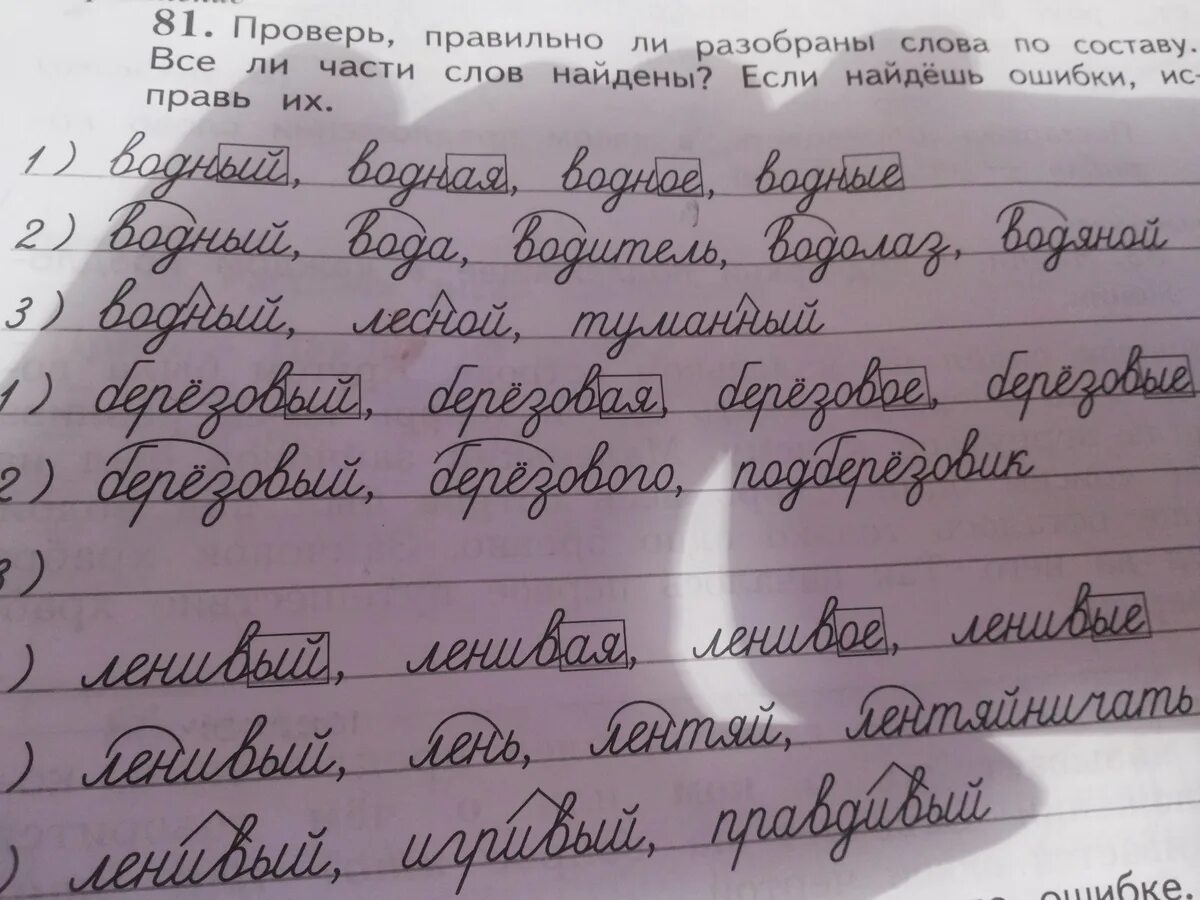 81. Проверь, правильно ли разобраны слова по составу.
Все ли части слов найдены? Если найдёшь ошибки, ис-
правь их.
1) водный, водная, водное, водные
2) водный, вода, водитель, водолаз, водяной
3) водный, лесной, туманный
1) берёзовый, берёзовая, берёзовое, берёзовые
2) берёзовый, берёзового, подберёзовик
3)
) ленивый, ленивая, ленивое, ленивые
) ленивый, лень, лентяй, лентяйничать
) ленивый, игривый, правдивый
ошибке.